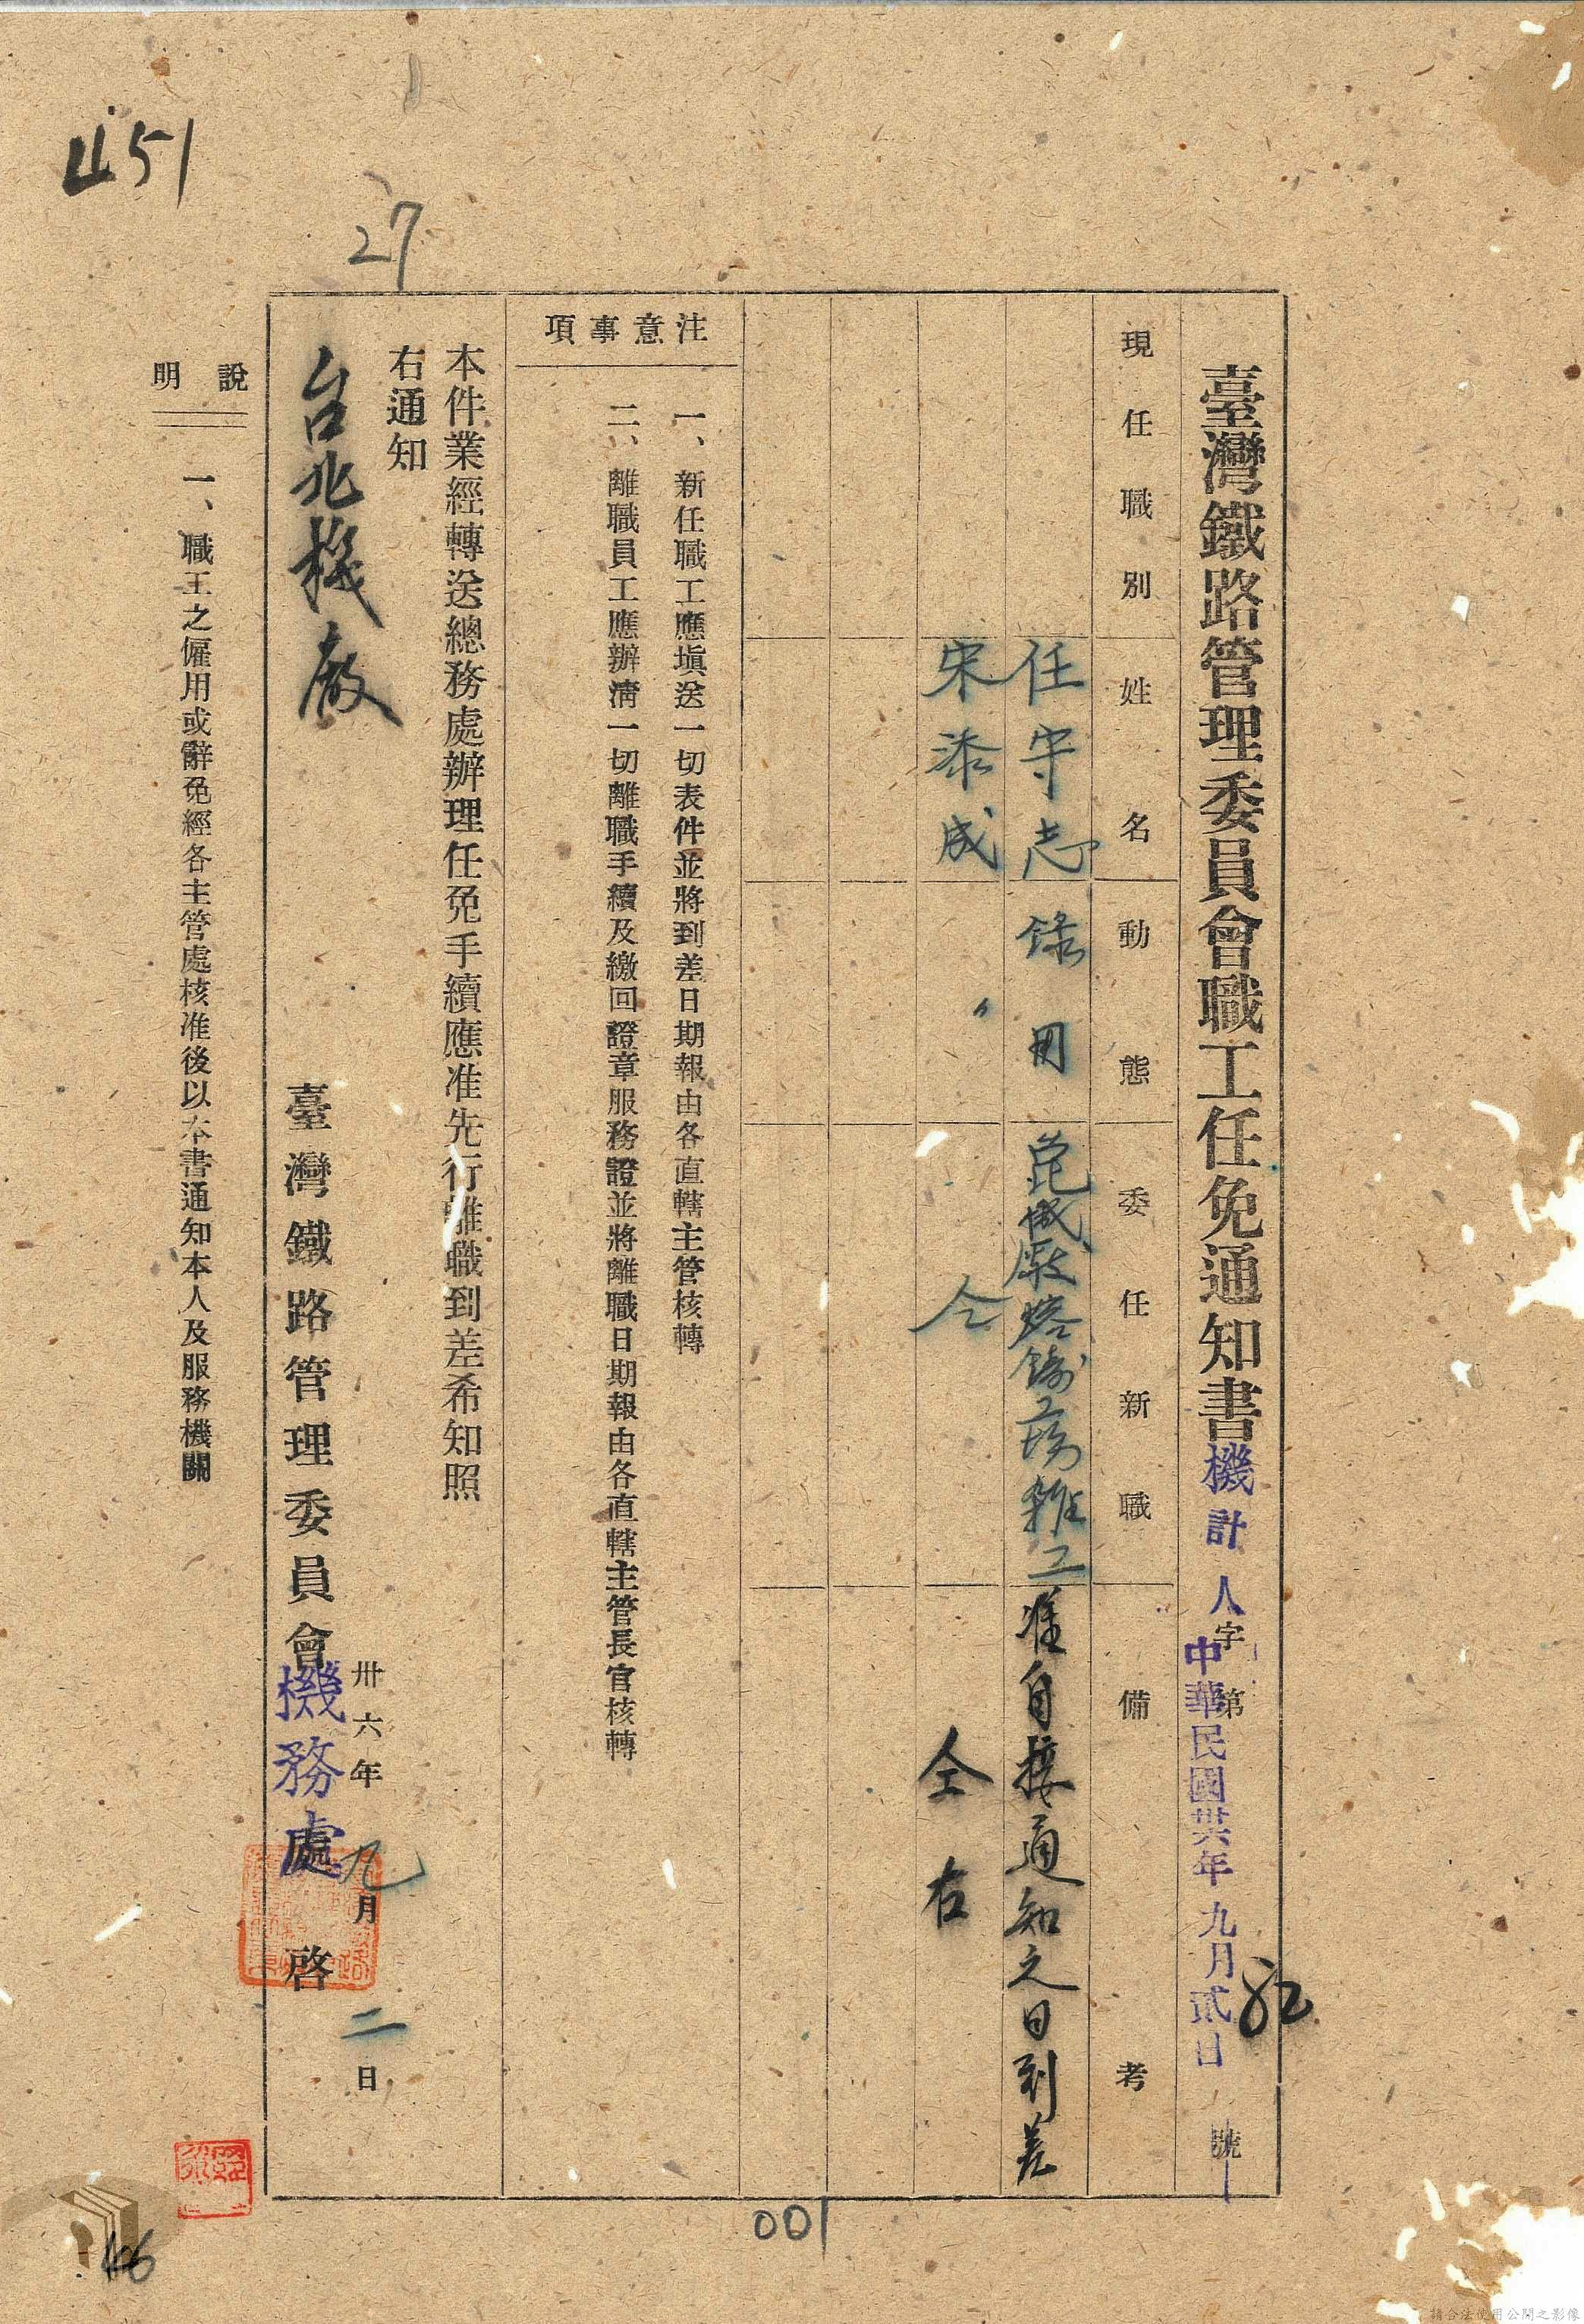 臺灣鐵路管理委員會職工任免通知書機計人字第 號
中華民國卅六年九月貳日
現任職別
姓名
動態
委任新職
備考
任守志
錄用
機廠熔鑄工場雜工
准自接通知之日到差
宋添成
〃
仝
仝右
注意事項
一、新任職工應塡送一切表件並將到差日期報由各直轄主管核轉
二、離職員工應辦清一切離職手續及繳回證章服務證並將離職日期報由各直轄主管長官核轉
本件業經轉送總務處辦理任免手續應准先行離職到差希知照
右通知
台北機廠
臺灣鐵路管理委員會機務處啓
卅六年九月二日
說明
一、職工之僱用或辭免經各主管處核准後以本書通知本人及服務機關
51
27
001
46
請合法使用公開之影像